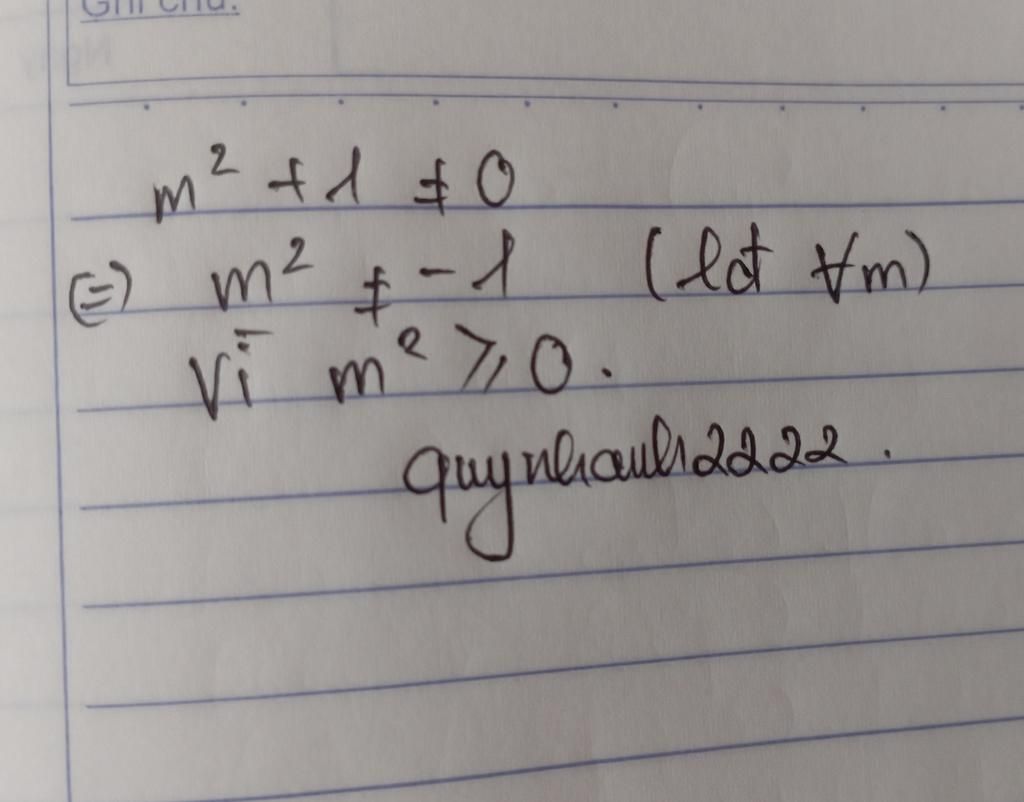 Ghi chú:
m² + 1 ≠ 0
⇔ m² ≠ -1 (lđ ∀m)
Vì m² ≥ 0.
quynhanh2222.